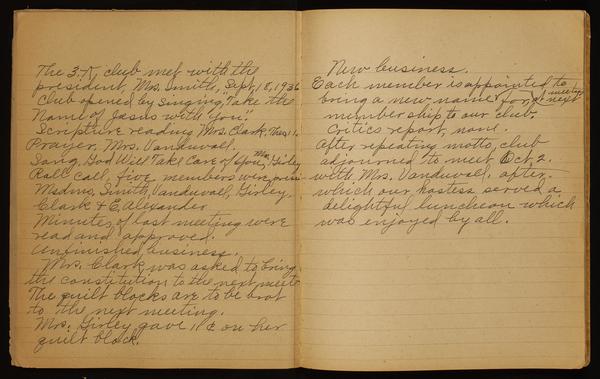 The 3-K club met with the
president, Mrs. Smith, Sept, 18, 1936
Club opened by singing, "Take the
Name of Jesus with You."
Scripture reading, Mrs. Clark,
Prayer, Mrs. Vanduvall.
Song, God Will Take Care of You, Mrs. Girley
Roll call, five members
Smith, Vanduvall, Girley,
Clark & E. Alexander
Minutes of last meeting were
read and approved.
Unfinished business.
Mrs. Clark was asked to bring
the constitution to the next meet.
The quilt blocks are to be brot
to the next meeting.
Mrs. Girley gave 11¢ on her
quilt block.
New business.
Each member is appointed to
bring a new name for next meeting
membership to our club.
Critics report, none.
After repeating motto, club
adjourned to meet Oct, 2.
with Mrs. Vanduvall, after
which our hostess served a
delightful luncheon which
was enjoyed by all.